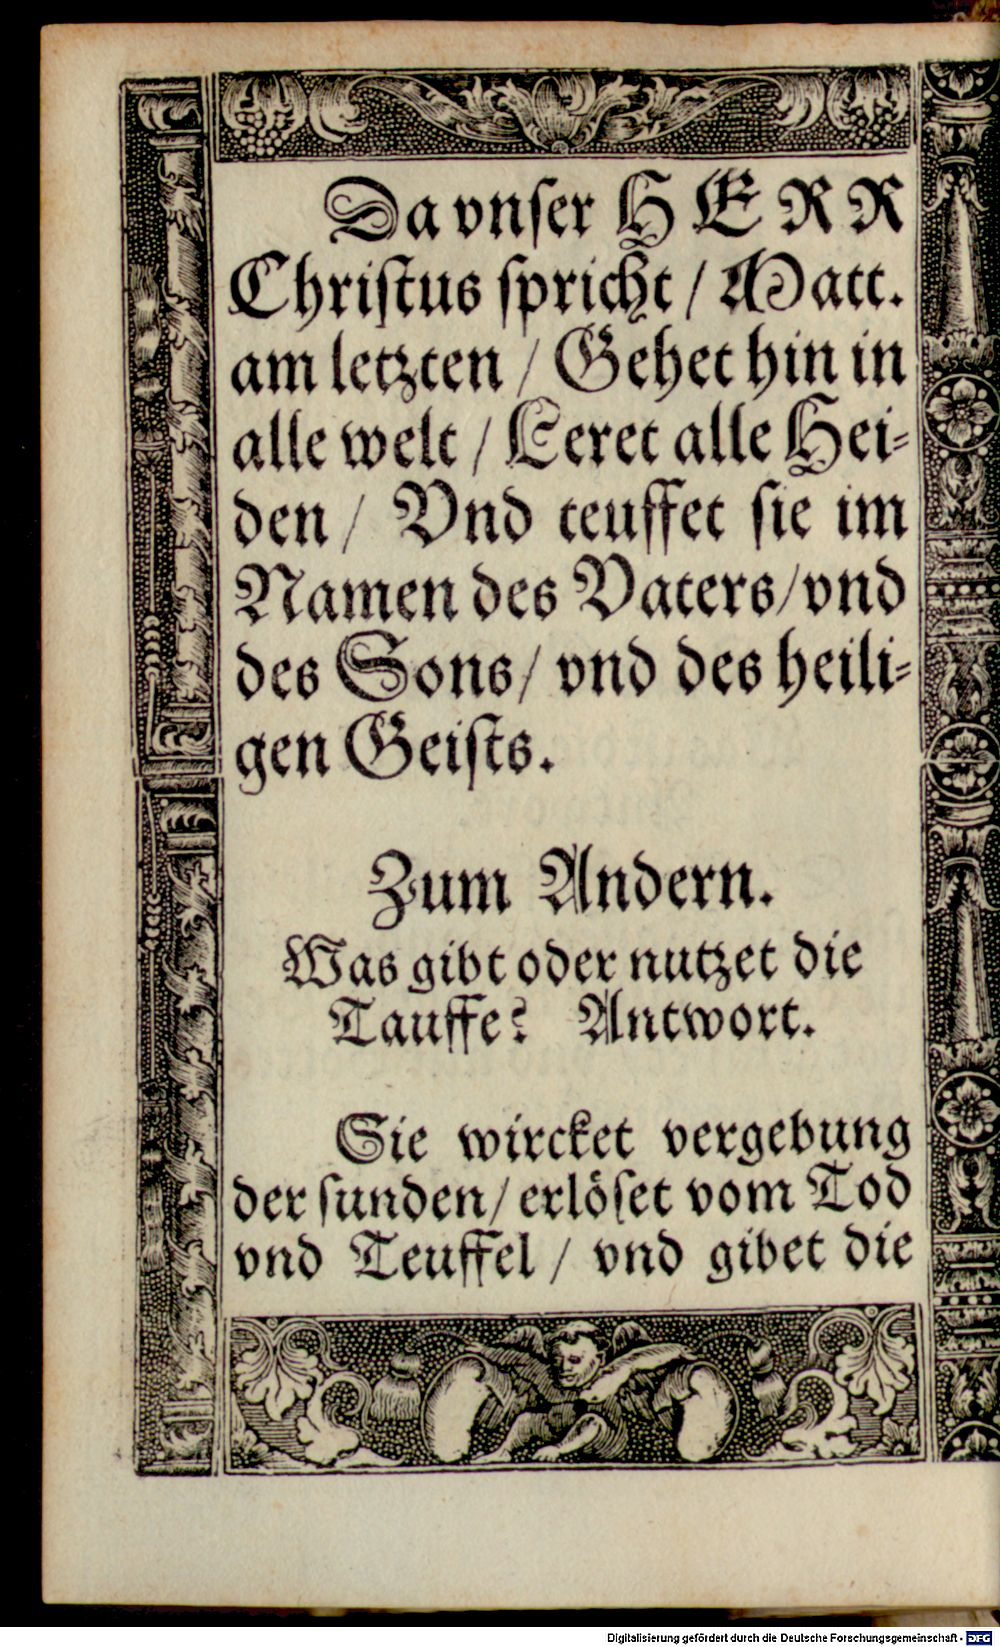 Da vnſer HERR
Chriſtus ſpricht / Matt.
am letzten / Gehet hin in
alle welt / Leret alle Hei-
den / Vnd teuffet ſie im
Namen des Vaters / vnd
des Sons / vnd des heili-
gen Geiſts.
Zum Andern.
Was gibt oder nutzet die
Tauffe? Antwort.
Sie wircket vergebung
der ſunden / erlöſet vom Tod
vnd Teuffel / vnd gibet die
Digitalisierung gefördert durch die Deutsche Forschungsgemeinschaft - DFG